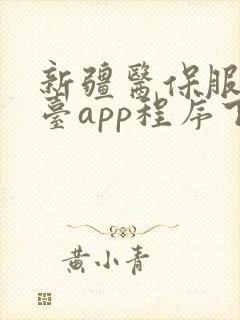 新疆醫保服
臺app程序下
黄小青